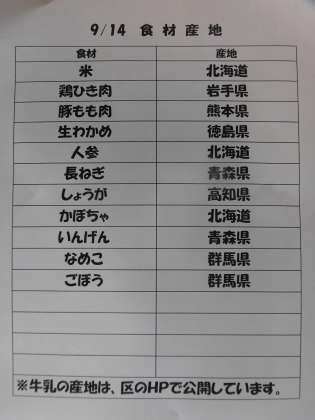 9/14 食材産地
食材 産地
米 北海道
鶏ひき肉 岩手県
豚もも肉 熊本県
生わかめ 徳島県
人参 北海道
長ねぎ 青森県
しょうが 高知県
かぼちゃ 北海道
いんげん 青森県
なめこ 群馬県
ごぼう 群馬県
※牛乳の産地は、区のHPで公開しています。